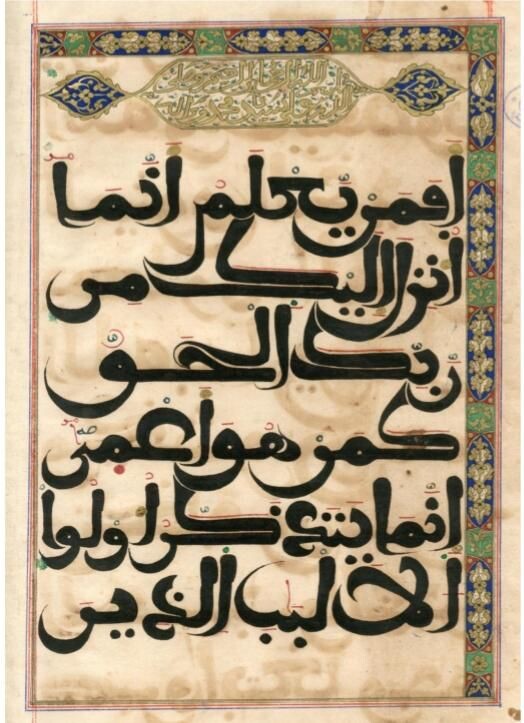 أَفَمَن يَعْلَمُ أَنَّمَا
أُنزِلَ إِلَيْكَ مِن
رَّبِّكَ الْحَقُّ
كَمَنْ هُوَ أَعْمَىٰ
إِنَّمَا يَتَذَكَّرُ أُولُوا
الْأَلْبَٰبِ الَّذِينَ